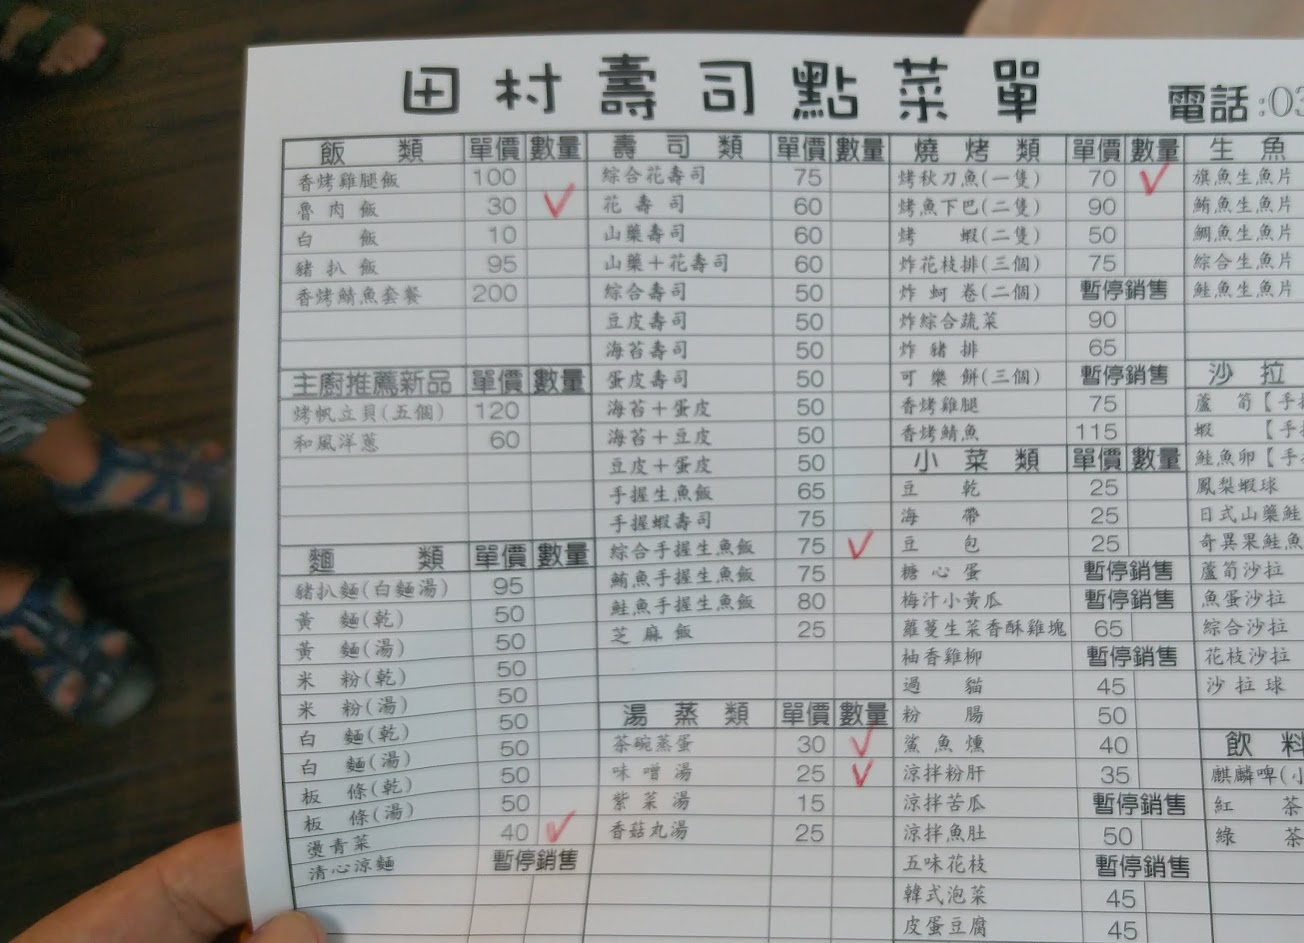 田村壽司點菜單
電話:03
飯類 單價 數量
香烤雞腿飯 100
魯肉飯 30 ✓
白飯 10
豬扒飯 95
香烤鯖魚套餐 200
主廚推薦新品 單價 數量
烤帆立貝(五個) 120
和風洋蔥 60
麵類 單價 數量
豬扒麵(白麵湯) 95
黃麵(乾) 50
黃麵(湯) 50
米粉(乾) 50
米粉(湯) 50
白麵(乾) 50
白麵(湯) 50
板條(乾) 50
板條(湯) 50
燙青菜 40 ✓
清心涼麵 暫停銷售
壽司類 單價 數量
綜合花壽司 75
花壽司 60
山藥壽司 60
山藥+花壽司 60
綜合壽司 50
豆皮壽司 50
海苔壽司 50
蛋皮壽司 50
海苔+蛋皮 50
海苔+豆皮 50
豆皮+蛋皮 50
手握生魚飯 65
手握蝦壽司 75
綜合手握生魚飯 75 ✓
鮪魚手握生魚飯 75
鮭魚手握生魚飯 80
芝麻飯 25
湯蒸類 單價 數量
茶碗蒸蛋 30 ✓
味噌湯 25 ✓
紫菜湯 15
香菇丸湯 25
燒烤類 單價 數量
烤秋刀魚(一隻) 70 ✓
烤魚下巴(二隻) 90
烤蝦(二隻) 50
炸花枝排(三個) 75
炸蚵卷(二個) 暫停銷售
炸綜合蔬菜 90
炸豬排 65
可樂餅(三個) 暫停銷售
香烤雞腿 75
香烤鯖魚 115
小菜類 單價 數量
豆乾 25
海帶 25
豆包 25
糖心蛋 暫停銷售
梅汁小黃瓜 暫停銷售
蘿蔓生菜香酥雞塊 65
柚香雞柳 暫停銷售
過貓 45
粉腸 50
鯊魚燻 40
涼拌粉肝 35
涼拌苦瓜 暫停銷售
涼拌魚肚 50
五味花枝 暫停銷售
韓式泡菜 45
皮蛋豆腐 45
生魚
旗魚生魚片
鮪魚生魚片
鯛魚生魚片
綜合生魚片
鮭魚生魚片
沙拉
蘆筍【手
蝦【手
鮭魚卵【手
鳳梨蝦球
日式山藥鮭
奇異果鮭魚
蘆筍沙拉
魚蛋沙拉
綜合沙拉
花枝沙拉
沙拉球
飲料
麒麟啤(小
紅茶
綠茶